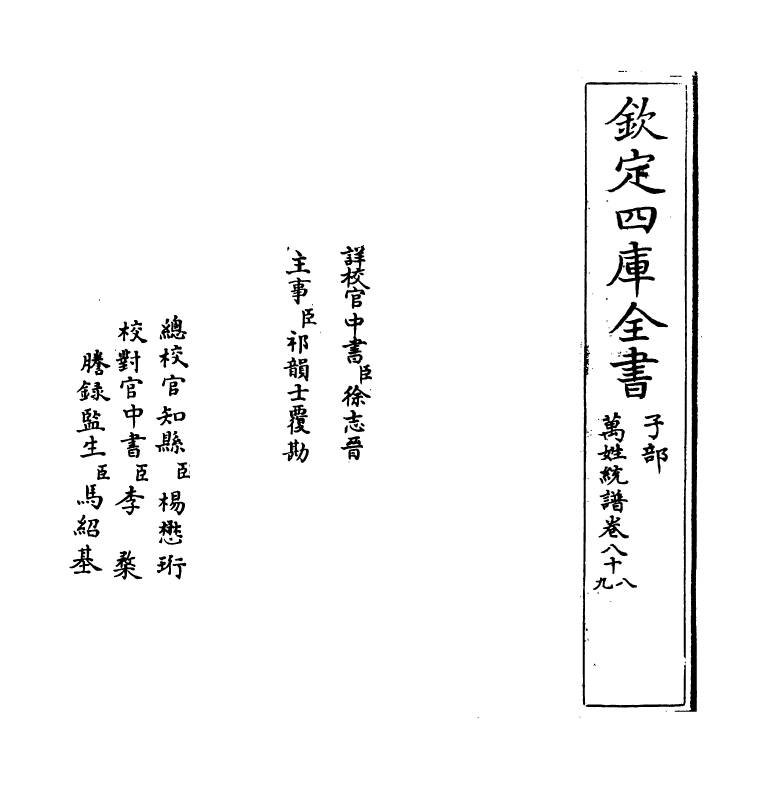 欽定四庫全書
子部
萬姓統譜卷八十八九
詳校官中書臣徐志晉
主事臣祁韻士覆勘
總校官知縣臣楊懋珩
校對官中書臣李榘
謄録監生臣馬紹基